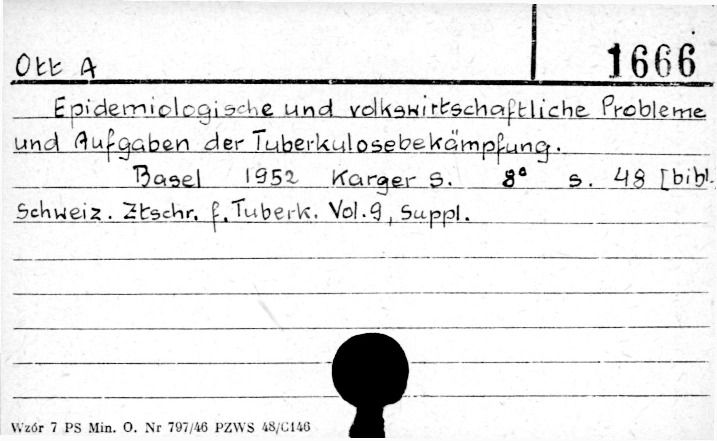 Ott A
1666
Epidemiologische und volkswirtschaftliche Probleme
und Aufgaben der Tuberkulosebekämpfung.
Basel 1952 Karger S. 8° s. 48 [bibl.
Schweiz. Ztschr. f. Tuberk. Vol. 9, Suppl.
Wzór 7 PS Min. O. Nr 797/46 PZWS 48/C146